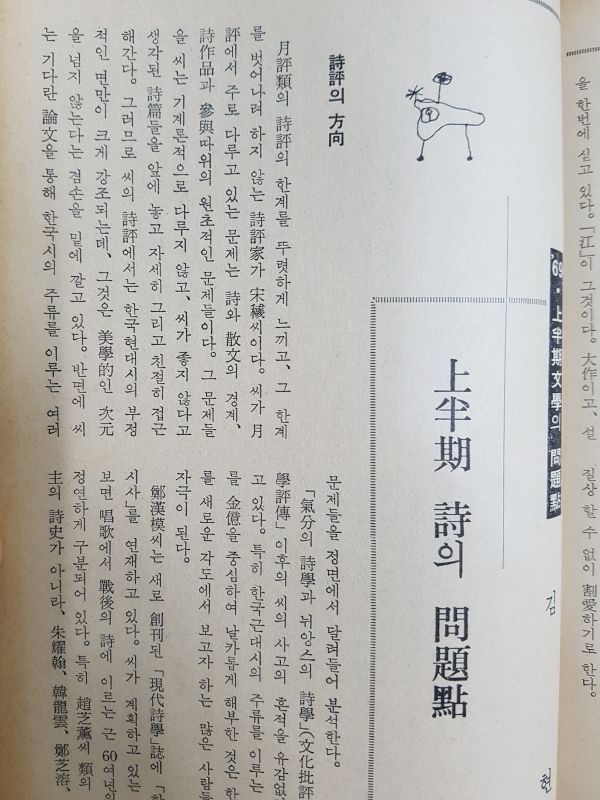 을 한번에 싣고 있다. 「江」이 그것이다. 大作이고, 설 질상 할 수 없이 割愛하기로 한다.
'69·上半期文學의 問題點
上半期 詩의 問題點
김 현
詩評의 方向
月評類의 詩評의 한계를 뚜렷하게 느끼고, 그 한계
를 벗어나려 하지 않는 詩評家가 宋稶씨이다. 씨가 月
評에서 주로 다루고 있는 문제는 詩와 散文의 경계,
詩作品과 參與따위의 원초적인 문제들이다. 그 문제들
을 씨는 기계론적으로 다루지 않고, 씨가 좋지 않다고
생각된 詩篇들을 앞에 놓고 자세히 그리고 친절히 접근
해간다. 그러므로 씨의 詩評에서는 한국현대시의 부정
적인 면만이 크게 강조되는데, 그것은 美學的인 次元
을 넘지 않는다는 겸손을 밑에 깔고 있다. 반면에 씨
는 기다란 論文을 통해 한국시의 주류를 이루는 여러
문제들을 정면에서 달려들어 분석한다.
「氣分의 詩學과 뉘앙스의 詩學」(文化批評
學評傳」 이후의 씨의 사고의 흔적을 유감없
고 있다. 특히 한국근대시의 주류를 이루는
를 金億을 중심하여 날카롭게 해부한 것은 한
를 새로운 각도에서 보고자 하는 많은 사람들
자극이 된다.
鄭漢模씨는 새로 創刊된 「現代詩學」誌에 「한
시사」를 연재하고 있다. 씨가 계획하고 있는
보면 唱歌에서 戰後의 詩에 이르는 근 60여년의
정연하게 구분되어 있다. 특히 趙芝薰씨 類의
主의 詩史가 아니라, 朱耀翰、韓龍雲、鄭芝溶、